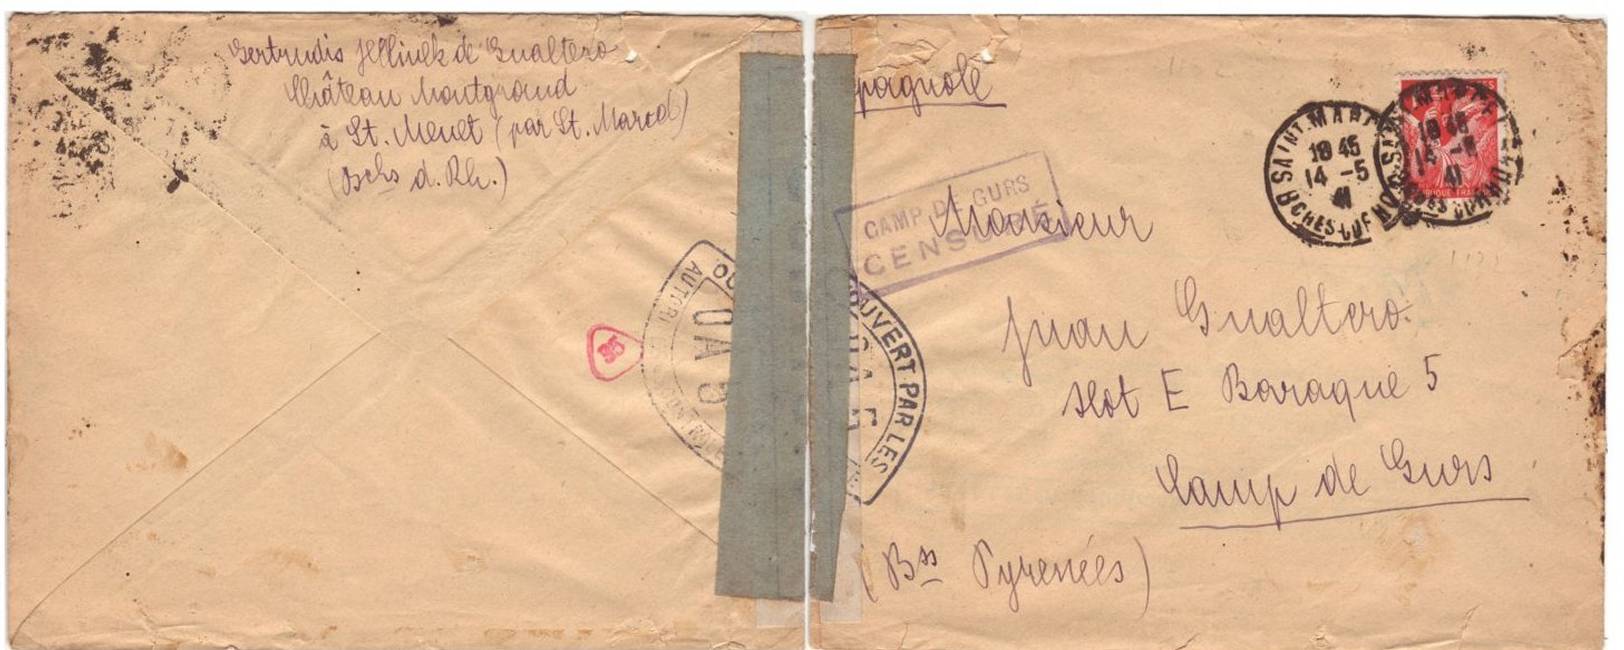 Gertrudis Jellinek de Gualtero
Château Montgrand
à St. Menet (par St. Marcel)
(Bchs d. Rh.)
35
AUTORI
OUVERT PAR LES
pagnole
CAMP DE GURS
CENSURÉ
SAINT MARC
18 45
14 -5
41
BCHES-DU-
18 45
14 -5
41
Monsieur
Juan Gualtero.
Ilot E Baraque 5
Camp de Gurs
(Bss Pyrenées)